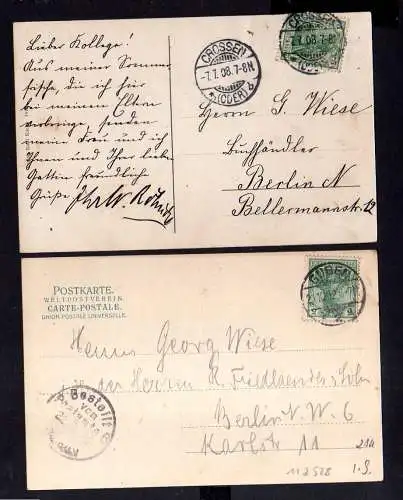 Lieber Kollege!
Aus meiner Sommer-
frische, die ich hier
bei meinen Eltern
verbringe senden
meine Frau und ich
Ihnen und Ihrer lieben
Gattin freundliche
Grüße
CROSSEN
-7.7.08.7-8N
*(ODER)b
CROSSEN
7.7.08.7-8N
(ODER)
Herrn G. Wiese
Buchhändler
Berlin N
Bellermannstr. 12
POSTKARTE.
WELTPOSTVEREIN
CARTE-POSTALE.
UNION POSTALE UNIVERSELLE.
GUBEN
Herrn Georg Wiese
Herrn R. Friedlaender & Sohn
Berlin N.W. 6
Karlstr 11
Bestellt
vom
Postamte
21a
112528 1.S.